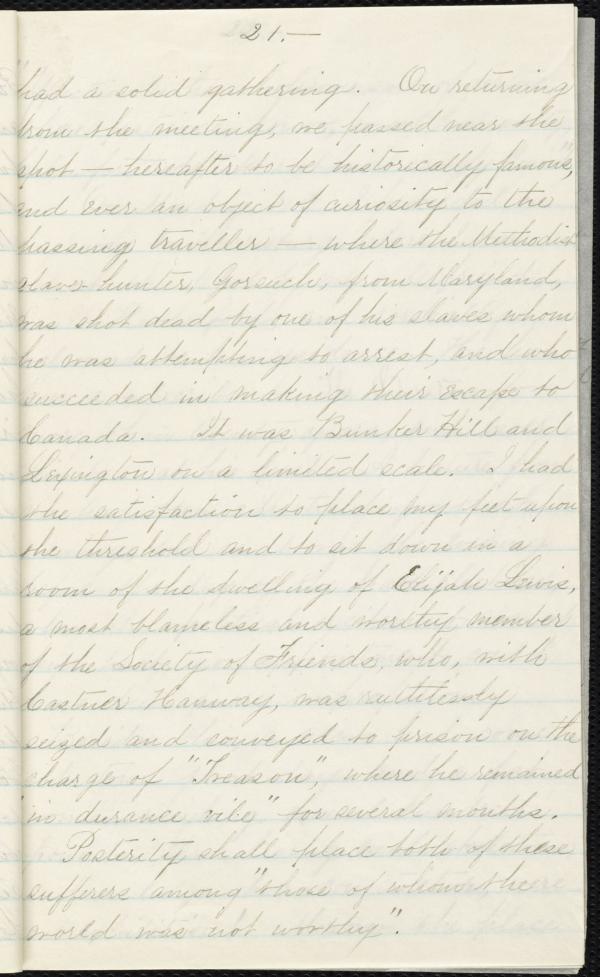 21.—
had a solid gathering. On returning
from the meeting, we passed near the
spot — hereafter to be historically famous,
and ever an object of curiosity to the
passing traveller — where the Methodist
slave hunter, Gorsuch, from Maryland,
was shot dead by one of his slaves whom
he was attempting to arrest, and who
succeeded in making their escape to
Canada. It was Bunker Hill and
Lexington on a limited scale. I had
the satisfaction to place my feet upon
the threshold and to sit down in a
room of the dwelling of Elijah Lewis,
a most blameless and worthy member
of the Society of Friends, who, with
Castner Hanway, was ruthlessly
seized and conveyed to prison on the
charge of "Treason", where he remained
"in durance vile" for several months.
Posterity shall place both of these
sufferers among "those of whom the
world was not worthy".